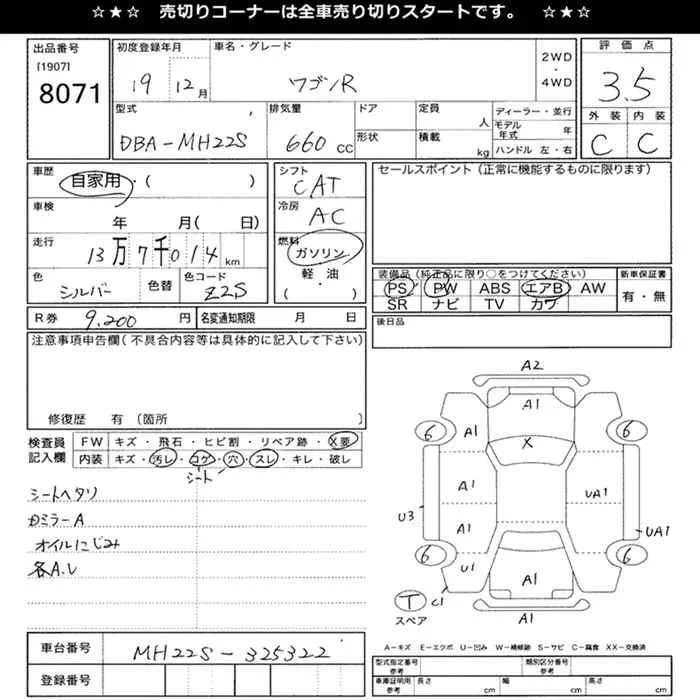 ☆★☆ 売切りコーナーは全車売り切りスタートです。 ☆★☆
出品番号
[1907]
8071
初度登録年月
19 12月
車名・グレード
ワゴンR
2WD
・
4WD
評価点
3.5
外装 内装
C C
型式
DBA-MH22S
排気量
660 CC
ドア
形状
定員
人
積載
kg
ディーラー・並行
モデル年式 年
ハンドル 左・右
車歴
自家用・( )
車検
年 月( 日)
走行
13万7千014 km
色
シルバー
色替
色コード
Z2S
シフト
CAT
冷房
AC
燃料
ガソリン
軽・油
( )
セールスポイント(正常に機能するものに限ります)
装備品(純正品に限り○をつけてください)
PS PW ABS エアB AW
SR ナビ TV カワ
新車保証書
有・無
R券 9,200 円
名変通知期限 月 日
後日品
注意事項申告欄(不具合内容等は具体的に記入して下さい)
修復歴 有 〔箇所 〕
検査員
記入欄
FW キズ・飛石・ヒビ割・リペア跡・X要
内装 キズ・汚レ・コゲ・穴・スレ・キレ・破レ
シート
シートヘタリ
カミラーA
オイルにじみ
各A.U
A2
A1
6 A1 6
X
A1
UA1
U3
A1
UA1
6 U1 6
A1
C1
T
スペア
A1
A-キズ E-エクボ U-凹み W-補修跡 S-サビ C-腐食 XX-交換済
車台番号
MH22S-325322
登録番号
型式指定番号
参考
類別区分番号
参考
車庫証明用
参考
長さ cm
幅 cm
高さ cm